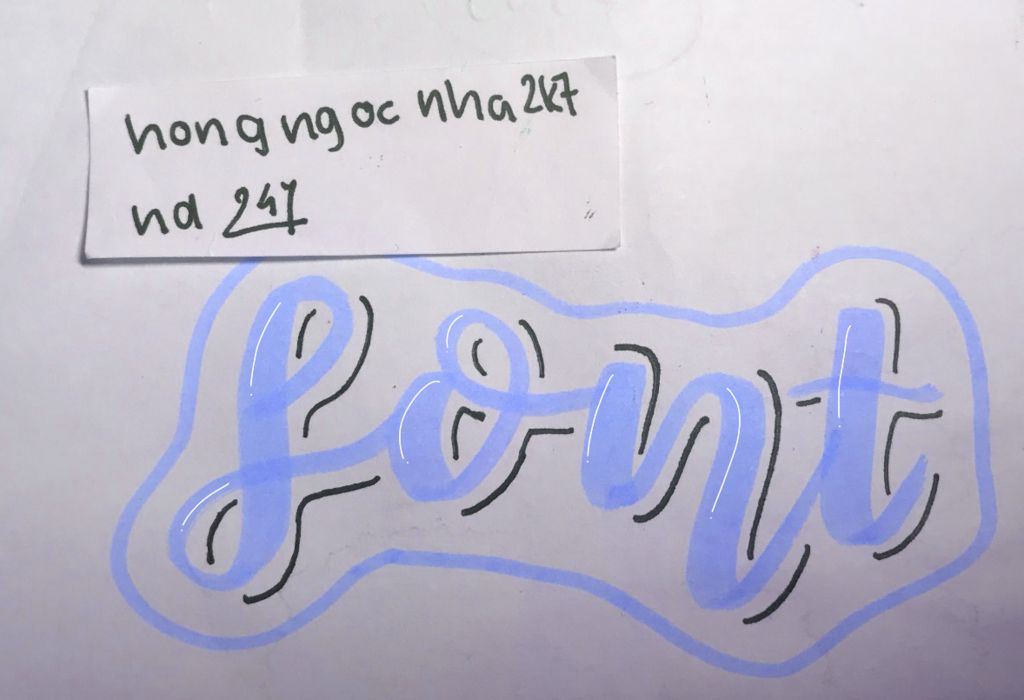 hong ngoc nha 2k7
nd 247
font